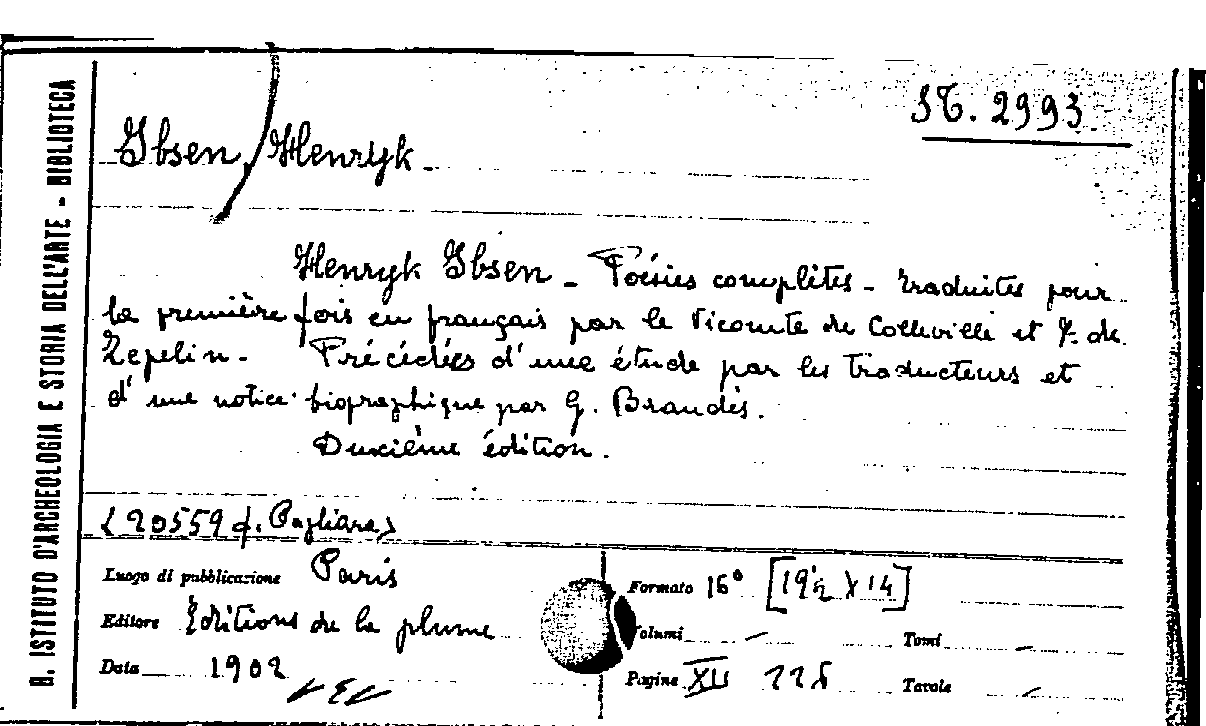 R. ISTITUTO D'ARCHEOLOGIA E STORIA DELL'ARTE - BIBLIOTECA
ST. 2993
Ibsen, Henryk -
Henryk Ibsen - Poésies complètes - traduites pour
la première fois en français par le Vicomte de Colleville et F. de
Zepelin - Précédées d'une étude par les traducteurs et
d'une notice biographique par G. Brandès.
Deuxième édition.
(20559 d. Pagliara)
Luogo di pubblicazione Paris
Formato 16° [19½ X 14]
Editore Editions de la plume
Volumi - Tomi -
Data 1902
Pagine XII Tavole -